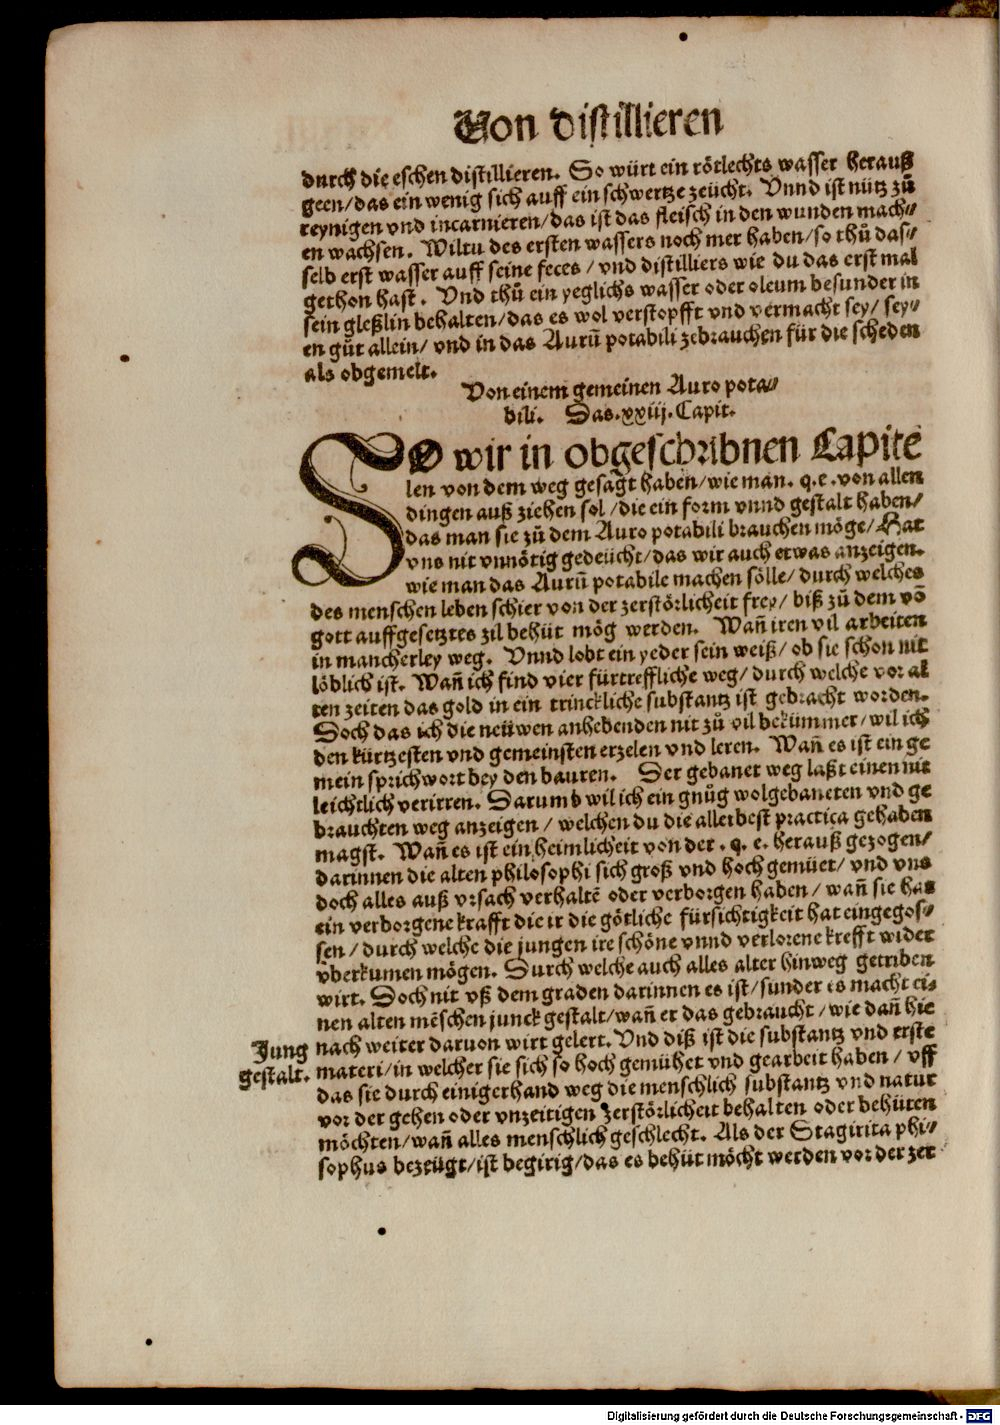 Von distillieren
durch die eschen distillieren. So würt ein rötlechts wasser herauß
geen/das ein wenig sich auff ein schwertze zeücht. Vnnd ist nütz zů
reynigen vnd incarnieren/das ist das fleisch in den wunden mach⸗
en wachsen. Wiltu des ersten wassers noch mer haben/so thů das⸗
selb erst wasser auff seine feces/vnd distilliers wie du das erst mal
gethon hast. Vnd thů ein yeglichs wasser oder oleum besunder in
sein gleßlin behalten/das es wol verstopfft vnd vermacht sey/sey⸗
en gůt allein/vnd in das Aurū potabili zebrauchen für die scheden
als obgemelt.
Von einem gemeinen Auro pota⸗
bili. Das.xxiij.Capit.
SO wir in obgeschribnen Capite
len von dem weg gesagt haben/wie man. q.e.von allen
dingen auß ziehen sol/die ein form vnnd gestalt haben/
das man sie zů dem Auro potabili brauchen möge/Hat
vns nit vnnötig gedeücht/das wir auch etwas anzeigen.
wie man das Aurū potabile machen sölle/durch welches
des menschen leben schier von der zerstörlicheit frey/biß zů dem vō
gott auffgesetztes zil behüt mög werden. Wañ iren vil arbeiten
in mancherley weg. Vnnd lobt ein yeder sein weiß/ob sie schon nit
löblich ist. Wañ ich find vier fürtreffliche weg/durch welche vor al
ten zeiten das gold in ein trinckliche substantz ist gebracht worden.
Doch das ich die neüwen anhebenden nit zů vil bekümmer/wil ich
den kürtzesten vnd gemeinsten erzelen vnd leren. Wañ es ist ein ge
mein sprichwort bey den bauren. Der gebanet weg laßt einen nit
leichtlich verirren. Darumb wil ich ein gnůg wolgebaneten vnd ge
brauchten weg anzeigen/welchen du die allerbest practica gehaben
magst. Wañ es ist ein heimlicheit von der .q. e. herauß gezogen/
darinnen die alten philosophi sich groß vnd hoch gemüet/vnd vns
doch alles auß vrsach verhaltē oder verborgen haben/wañ sie hat
ein verborgene krafft die ir die götliche fürsichtigkeit hat eingegos⸗
sen/durch welche die jungen ire schöne vnnd verlorene krefft wider
vberkumen mögen. Durch welche auch alles alter hinweg getriben
wirt. Doch nit vß dem graden darinnen es ist/sunder es macht ei⸗
nen alten mēschen junck gestalt/wañ er das gebraucht/wie dañ hie
nach weiter daruon wirt gelert. Vnd diß ist die substantz vnd erste
Jung
gestalt.
materi/in welcher sie sich so hoch gemühet vnd gearbeit haben/vff
das sie durch einigerhand weg die menschlich substantz vnd natur
vor der gehen oder vnzeitigen zerstörlicheit behalten oder behüten
möchten/wañ alles menschlich geschlecht. Als der Stagirita phi⸗
sophus bezeügt/ist begirig/das es behüt möcht werden vor der zer
Digitalisierung gefördert durch die Deutsche Forschungsgemeinschaft - DFG